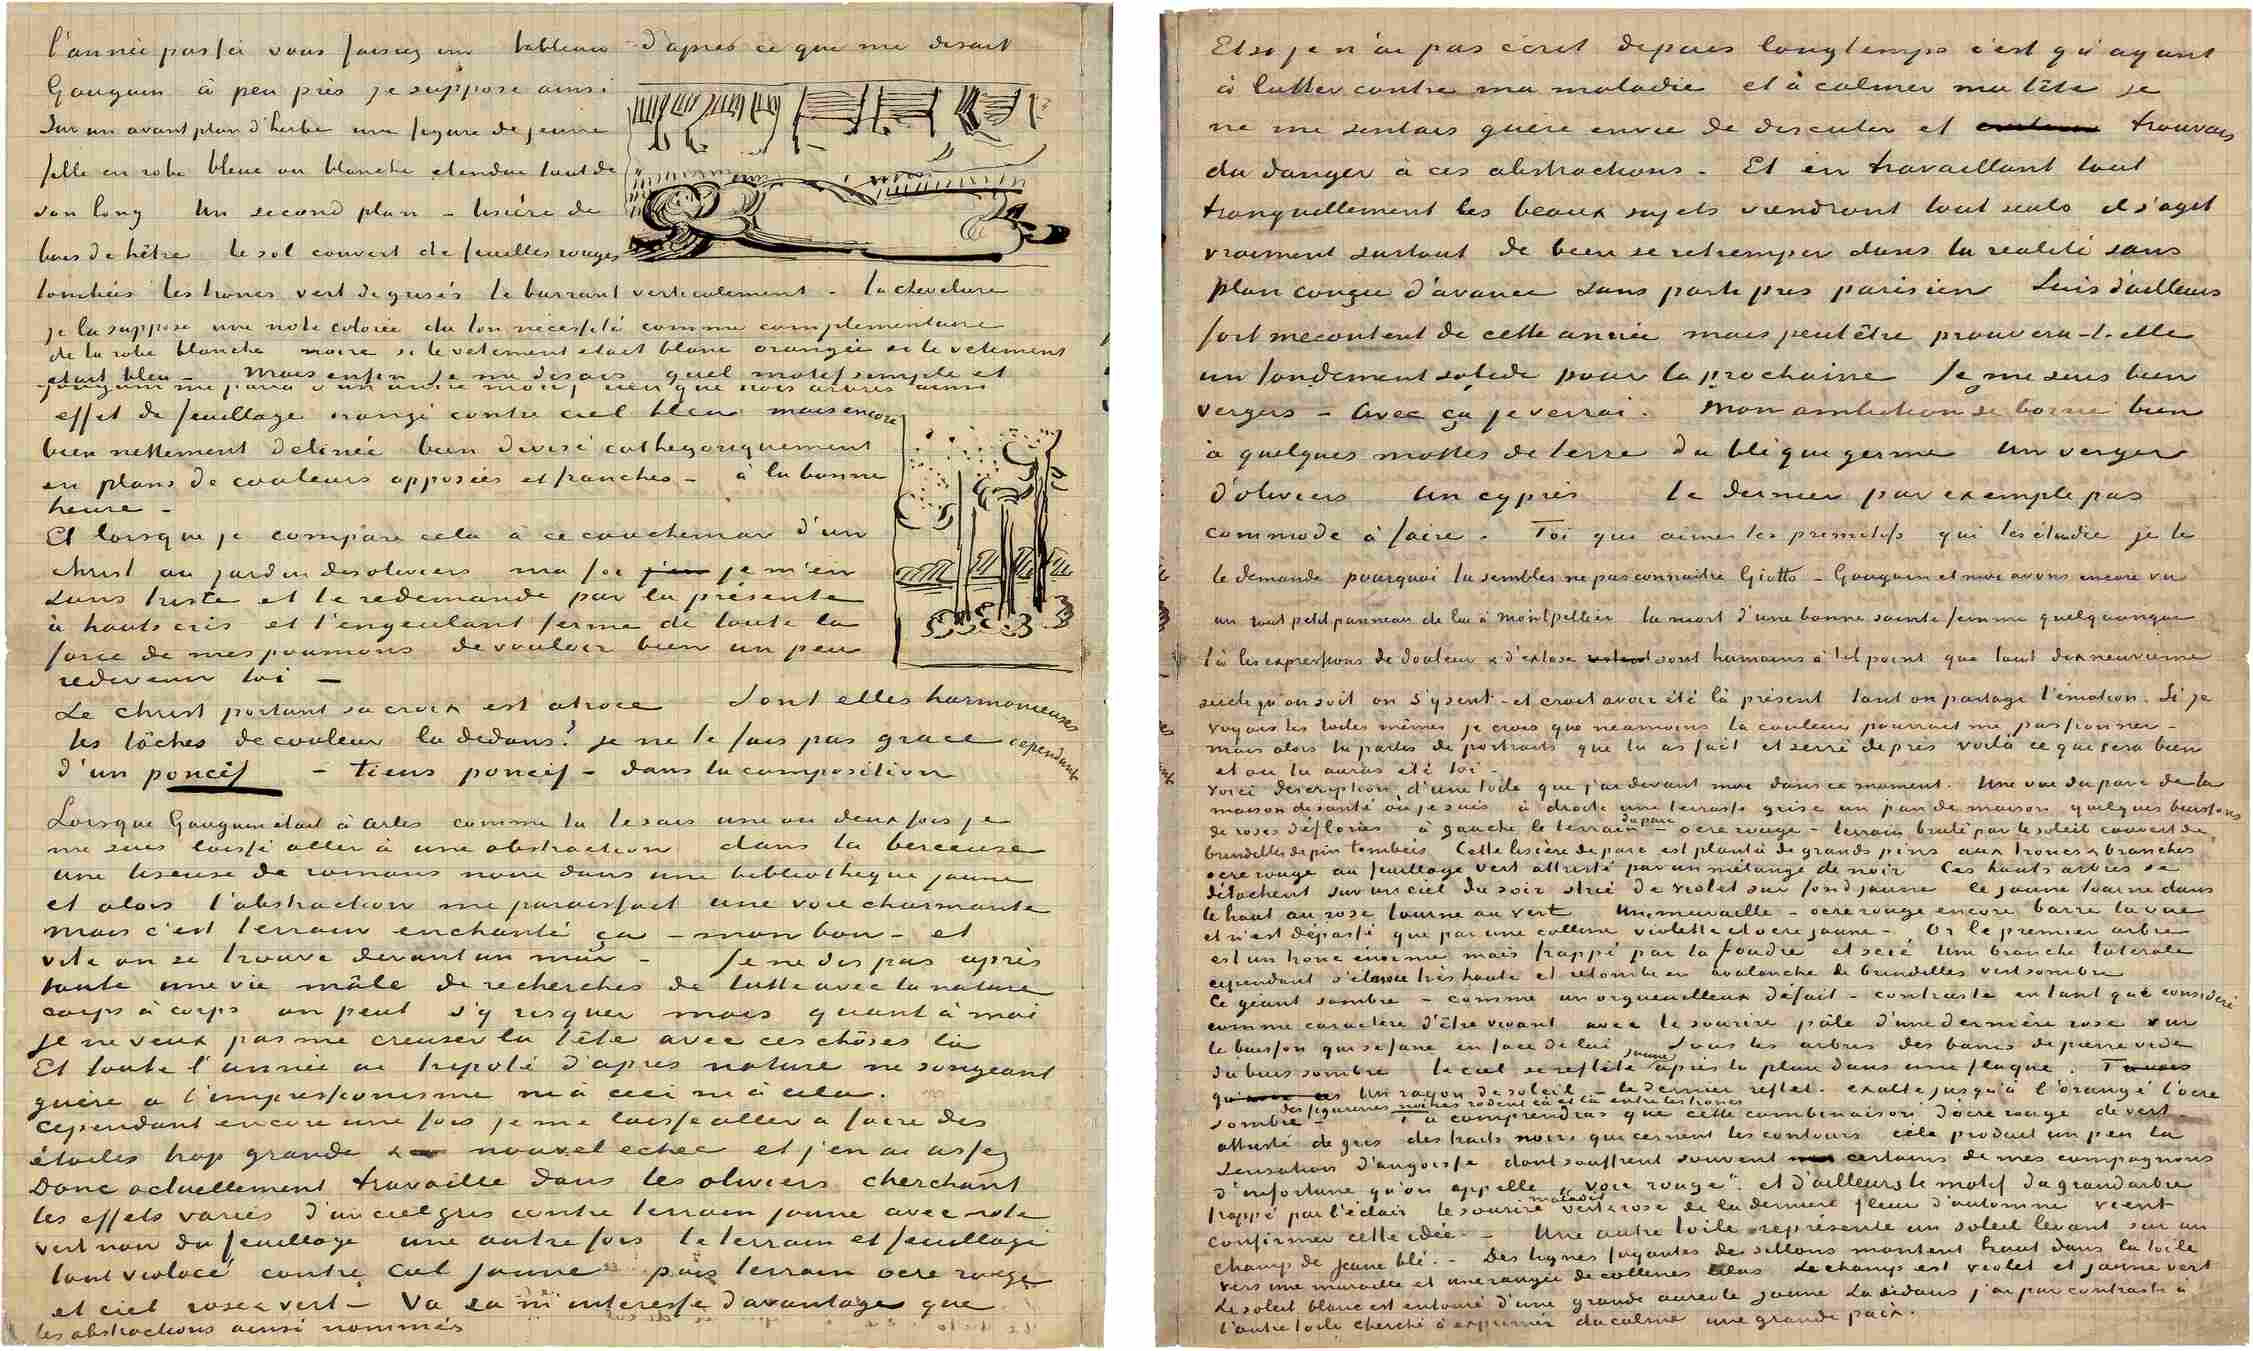 l'année passée vous faisiez un tableau d'après ce que me disait
Gauguin à peu près je suppose ainsi
Sur un avant plan d'herbe une figure de jeune
fille en robe bleue ou blanche etendue tout de
son long Un second plan – lisière de
bois de hêtre le sol couvert de feuilles rouges
tombées les troncs vert de grisés le barrant verticalement – la chevelure
je la suppose une note colorée du ton nécessité comme complementaire
de la robe blanche noire si le vetement etait blanc orangée si le vetement
etait bleu – Mais enfin je me disais quel motif simple et
Gauguin me parla d'un autre motif rien que trois arbres ainsi
effet de feuillage orangé contre ciel bleu mais encore
bien nettement delinée bien divisé cathegoriquement
en plans de couleurs opposées et franches – à la bonne
heure –
Et lorsque je compare cela à ce cauchemar d'un
christ au jardin des oliviers ma foi j'en je m'en
sens triste et te redemande par la présente
à hauts cris et t'engeulant ferme de toute la
force de mes poumons de vouloir bien un peu
redevenir toi –
Le Christ portant sa croix est atroce Sont elles harmonieuses
les tâches de couleur la dedans? je ne te fais pas grace cependant
d'un poncif – tiens poncif – dans la composition
Lorsque Gauguin était à Arles comme tu le sais une ou deux fois je
me suis laissé aller à une abstraction dans la berceuse
une liseuse de romans noire dans une bibliotheque jaune
et alors l'abstraction me paraissait une voie charmante
mais c'est terrain enchanté ça – mon bon – et
vite on se trouve devant un mûr – Je ne dis pas après
toute une vie mâle de recherches de lutte avec la nature
corps à corps on peut s'y risquer mais quant à moi
je ne veux pas me creuser la tête avec ces chôses là
Et toute l'année ai tripoté d'apres nature ne songeant
guère a l'impressionisme ni à ceci ni à cela.
Cependant encore une fois je me laisse aller a faire des
étoiles trop grande & nouvel echec et j'en ai assez
Donc actuellement travaille dans les oliviers cherchant
les effets variés d'un ciel gris contre terrain jaune avec note
vert noir du feuillage une autre fois le terrain et feuillage
tout violacé contre ciel jaune puis terrain ocre rouge
et ciel rose & vert – Va ça m'interesse d'avantage que
les abstractions ainsi nommés
Et si je n'ai pas écrit depuis longtemps c'est qu'ayant
à lutter contre ma maladie et à calmer ma tête je
ne me sentais guère envie de discuter et trouvais
du danger à ces abstractions – Et en travaillant tout
tranquillement les beaux sujets viendront tout seuls il s'agit
vraiment surtout de bien se retremper dans la realité sans
plan conçu d'avance sans parti pris parisien Suis d'ailleurs
fort mecontent de cette année mais peut être prouvera-t-elle
un fondement solide pour la prochaine Je me suis bien
vergers – Avec ça je verrai. Mon ambition se borne bien
à quelques mottes de terre du blé qui germe un verger
d'oliviers Un cyprès le dernier par exemple pas
commode à faire. Toi qui aimes les primitifs qui les étudie je te
le demande pourquoi tu sembles ne pas connaitre Giotto – Gauguin et moi avons encore vu
un tout petit panneau de lui à Montpellier la mort d'une bonne sainte femme quelquonque
Là les expressions de douleur & d'extase sont humains à tel point que tout dixneuvieme
siècle qu'on soit on s'y sent – et croit avoir été là présent tant on partage l'émotion. Si je
voyais les toiles mêmes je crois que neamoins la couleur pourrait me passionner –
mais alors tu parles de portraits que tu as fait et serré de près voilà ce qui sera bien
et où tu auras été toi –
Voici description d'une toile que j'ai devant moi dans ce moment. Une vue du parc de la
maison de santé où je suis à droite une terrasse grise un pan de maison quelques buissons
de roses déflories à gauche le terrain du parc – ocre rouge – terrain brulé par le soleil couvert de
brindilles de pin tombées Cette lisière de parc est planté de grands pins aux troncs & branches
ocre rouge au feuillage vert attristé par un mélange de noir Ces hauts arbres se
détachent sur un ciel du soir strié de violet sur fond jaune le jaune tourne dans
le haut au rose tourne au vert Une muraille – ocre rouge encore barre la vue
et n'est dépassé que par une colline violette et ocre jaune – Or le premier arbre
est un tronc énorme mais frappé par la foudre et scié Une branche laterale
cependant s'élance très haute et retombe en avalanche de brindilles vert sombre
Ce géant sombre – comme un orgueuilleux défait – contraste en tant que consideré
comme caractère d'être vivant avec le sourire pâle d'une dernière rose sur
le buisson qui se fane en face de lui Sous les arbres des bancs de pierre vide
du buis sombre le ciel se reflète jaune après la pluie dans une flaque. Tu vois
Un rayon de soleil – le dernier reflet – exalte jusqu'à l'orangé l'ocre
sombre – des figurines noires rodent çà et là entre les troncs
Tu comprendras que cette combinaison d'ocre rouge de vert
attristé de gris des traits noirs qui cernent les contours cela produit un peu la
sensation d'angoisse dont souffrent souvent certains de mes compagnons
d'infortune qu'on appelle „voir rouge“ et d'ailleurs le motif du grand arbre
frappé par l'éclair le sourire maladif vert & rose de la derniere fleur d'automne vient
confirmer cette idée – Une autre toile represente un soleil levant sur un
champ de jeune blé. – Des lignes fuyantes des sillons montent haut dans la toile
vers une muraille et une rangée de collines lilas Le champ est violet et jaune vert
Le soleil blanc est entouré d'une grande aureole jaune Là dedans j'ai par contraste à
l'autre toile cherché à exprimer du calme une grande paix.